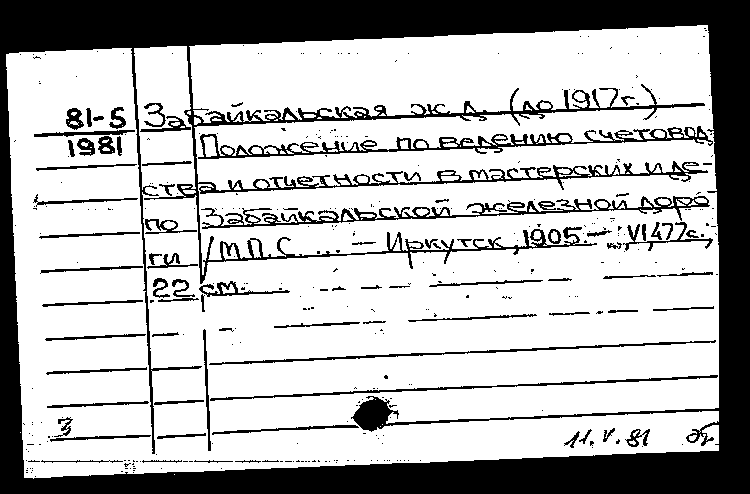 81-5 Забайкальская ж.д. (до 1917г.)
1981 Положение по ведению счетовод
ства и отчетности в мастерских и де-
по Забайкальской железной доро
ги /М.П.С. ... — Иркутск, 1905. — VI, 477с.;
22 см.
3
11.V.81